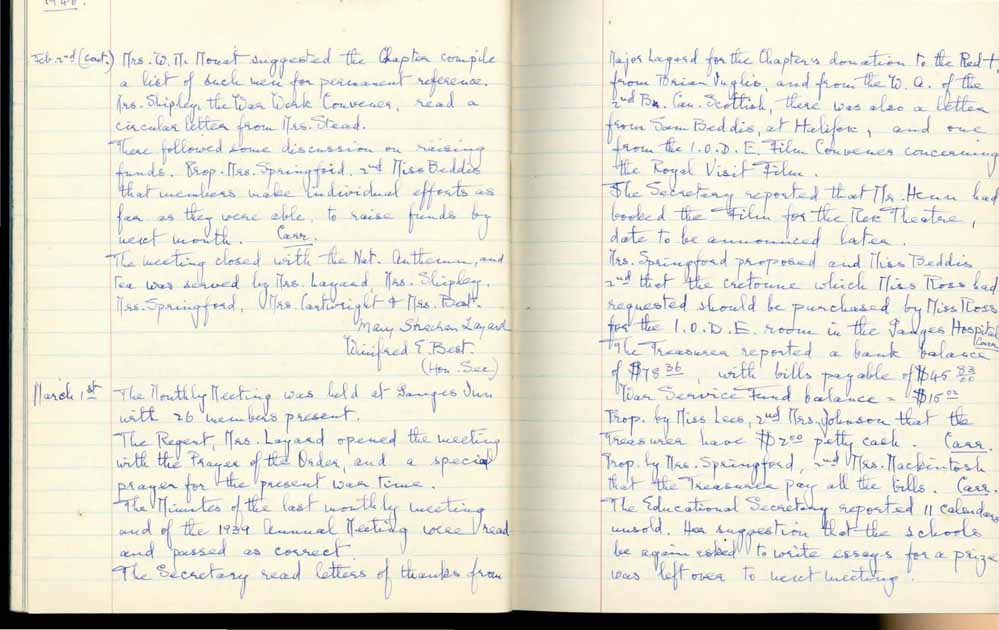 1940.
Feb. 2nd (cont.) Mrs. W. M. Mouat suggested the Chapter compile
a list of such men for permanent reference.
Mrs. Shipley, the War Work Convener, read a
circular letter from Mrs. Stead.
There followed some discussion on raising
funds. Prop. Mrs. Springford, 2nd Miss Beddis
that members make individual efforts as
far as they were able, to raise funds by
next month. Carr.
The meeting closed with the Nat. Anthem, and
Tea was served by Mrs. Layard, Mrs. Shipley,
Mrs. Springford, Mrs. Cartwright & Mrs. Best.
Mary Strachan Layard
Winifred E. Best.
(Hon. Sec)
March 1st The Monthly Meeting was held at Ganges Inn
with 26 members present.
The Regent, Mrs. Layard opened the meeting
with the Prayer of the Order, and a special
prayer for the present war time.
The Minutes of the last monthly meeting
and of the 1939 Annual Meeting were read
and passed as correct.
The Secretary read letters of thanks from
Major Layard for the Chapter's donation to the Red +,
from Brian Inglis, and from the W. A. of the
2nd Bn. Can. Scottish, there was also a letter
from Sam Beddis, at Halifax, and one
from the I.O.D.E. Film Convener concerning
the Royal Visit Film.
The Secretary reported that Mr. Henn had
booked the Film for the Rex Theatre,
date to be announced later.
Mrs. Springford proposed and Miss Beddis
2nd that the cretonne which Miss Ross had
requested should be purchased by Miss Ross
for the I.O.D.E. room in the Ganges Hospital
Carr.
The Treasurer reported a bank balance
of $78 36, with bills payable of $45 83
War Service Fund balance = $16 02
Prop. by Miss Lees, 2nd Mrs. Johnson that the
Treasurer have $2 00 petty cash. Carr.
Prop. by Mrs. Springford, 2nd Mrs. Mackintosh
that the Treasurer pay all the bills. Carr.
The Educational Secretary reported 11 calendars
unsold. Her suggestion that the schools
be again asked to write essays for a prize
was left over to next meeting.